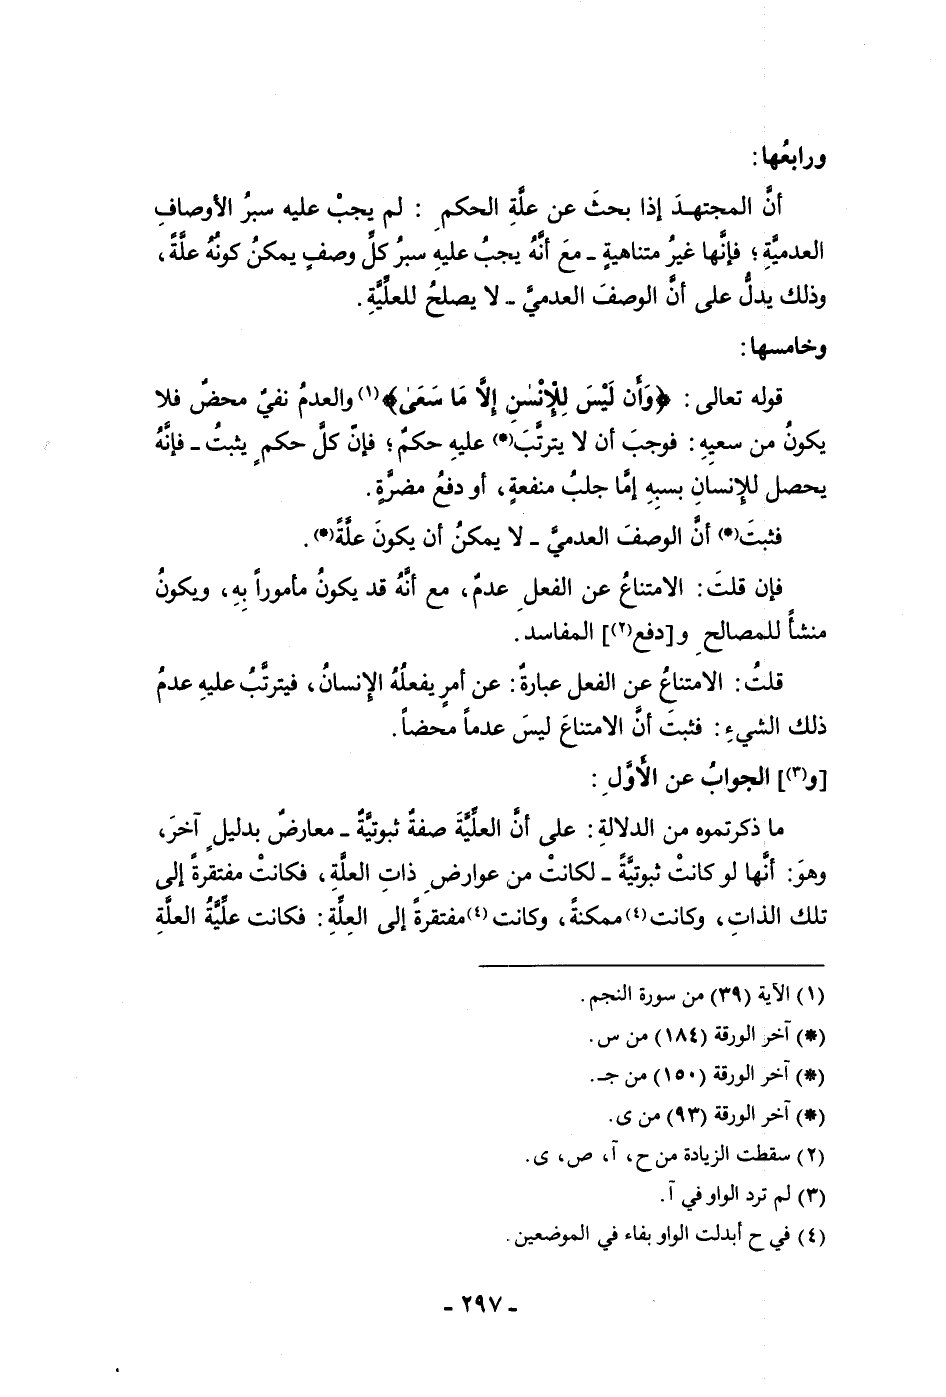 ورابعُها:
أنَّ المجتهدَ إذا بحثَ عن علَّةِ الحكمِ : لم يجبْ عليه سبرُ الأوصافِ
العدميَّةِ؛ فإنَّها غيرُ متناهيةٍ ـ معَ أنَّهُ يجبُ عليهِ سبرُ كلِّ وصفٍ يمكنُ كونُهُ علَّةً،
وذلك يدلُّ على أنَّ الوصفَ العدميَّ ـ لا يصلحُ للعلِّيَّةِ.
وخامسها:
قوله تعالى: ﴿وَأَن لَيْسَ لِلْإِنْسٰنِ إِلَّا مَا سَعَىٰ﴾(١) والعدمُ نفيٌ محضٌ فلا
يكونُ من سعيِهِ: فوجبَ أن لا يترتَّبَ(*) عليهِ حكمٌ؛ فإنّ كلَّ حكمٍ يثبتُ ـ فإنَّهُ
يحصل للإِنسانِ بسببِهِ إمَّا جلبُ منفعةٍ، أو دفعُ مضرَّةٍ.
فثبتَ(*) أنَّ الوصفَ العدميَّ ـ لا يمكنُ أن يكونَ علَّةً(*).
فإن قلتَ: الامتناعُ عن الفعلِ عدمٌ، مع أنَّهُ قد يكونُ مأموراً بِهِ، ويكونُ
منشأً للمصالحِ و[دفع(٢)] المفاسد.
قلتُ: الامتناعُ عن الفعل عبارةٌ: عن أمرٍ يفعلُهُ الإِنسانُ، فيترتَّبُ عليهِ عدمُ
ذلك الشيءِ: فثبتَ أنَّ الامتناعَ ليسَ عدماً محضاً.
[و(٣)] الجوابُ عن الأَوَّلِ:
ما ذكرتموه من الدلالةِ: على أنَّ العلِّيَّةَ صفةٌ ثبوتيَّةٌ ـ معارضٌ بدليلٍ آخرَ،
وهوَ: أنَّها لو كانتْ ثبوتيَّةً ـ لكانتْ من عوارضِ ذاتِ العلَّةِ، فكانتْ مفتقرةً إلى
تلك الذاتِ، وكانت(٤) ممكنةً، وكانت(٤) مفتقرةً إلى العلِّةِ: فكانت علِّيَّةُ العلَّةِ
(١) الآية (٣٩) من سورة النجم.
(*) آخر الورقة (١٨٤) من س.
(*) آخر الورقة (١٥٠) من جـ.
(*) آخر الورقة (٩٣) من ى.
(٢) سقطت الزيادة من ح، آ، ص، ى.
(٣) لم ترد الواو في آ.
(٤) في ح أبدلت الواو بفاء في الموضعين.
ـ ٢٩٧ ـ